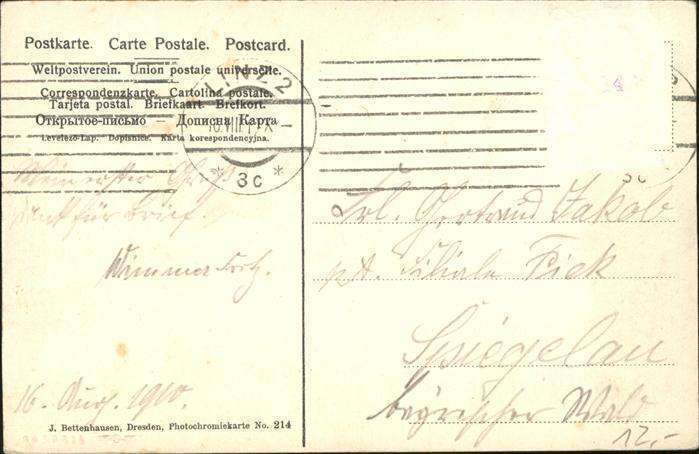 Postkarte. Carte Postale. Postcard.
Weltpostverein. Union postale universelle.
Correspondenzkarte. Cartolina postale.
Tarjeta postal. Briefkaart. Brefkort.
Открытое-письмо — Дописна Карта
Levelezö-Lap. Dopisnice. Karta korespondencyjna.
LINZ 2
10
* 3c *
für Brief.
16. Aug. 1910.
J. Bettenhausen, Dresden, Photochromiekarte No. 214
Frl. Gertraud Jakob
Filiale
Spiegelau
bayrischer Wald
12,-